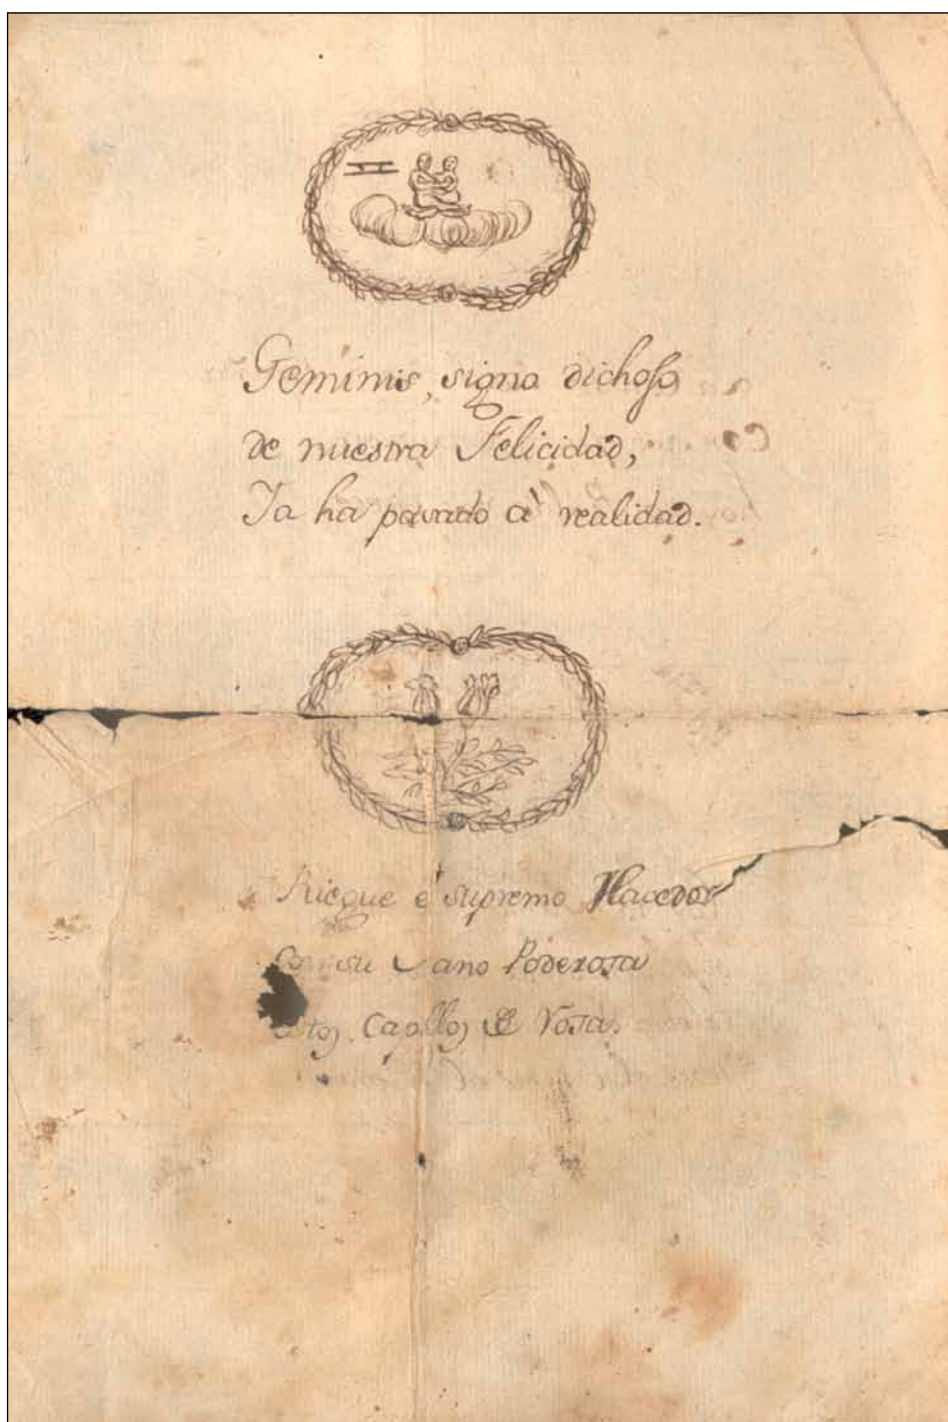 Geminis, signo dichoso
de nuestra Felicidad,
Ya ha pasado a realidad.
Riegue e supremo Hacedor
Con su ano Poderosa
Capllos de Rosa.